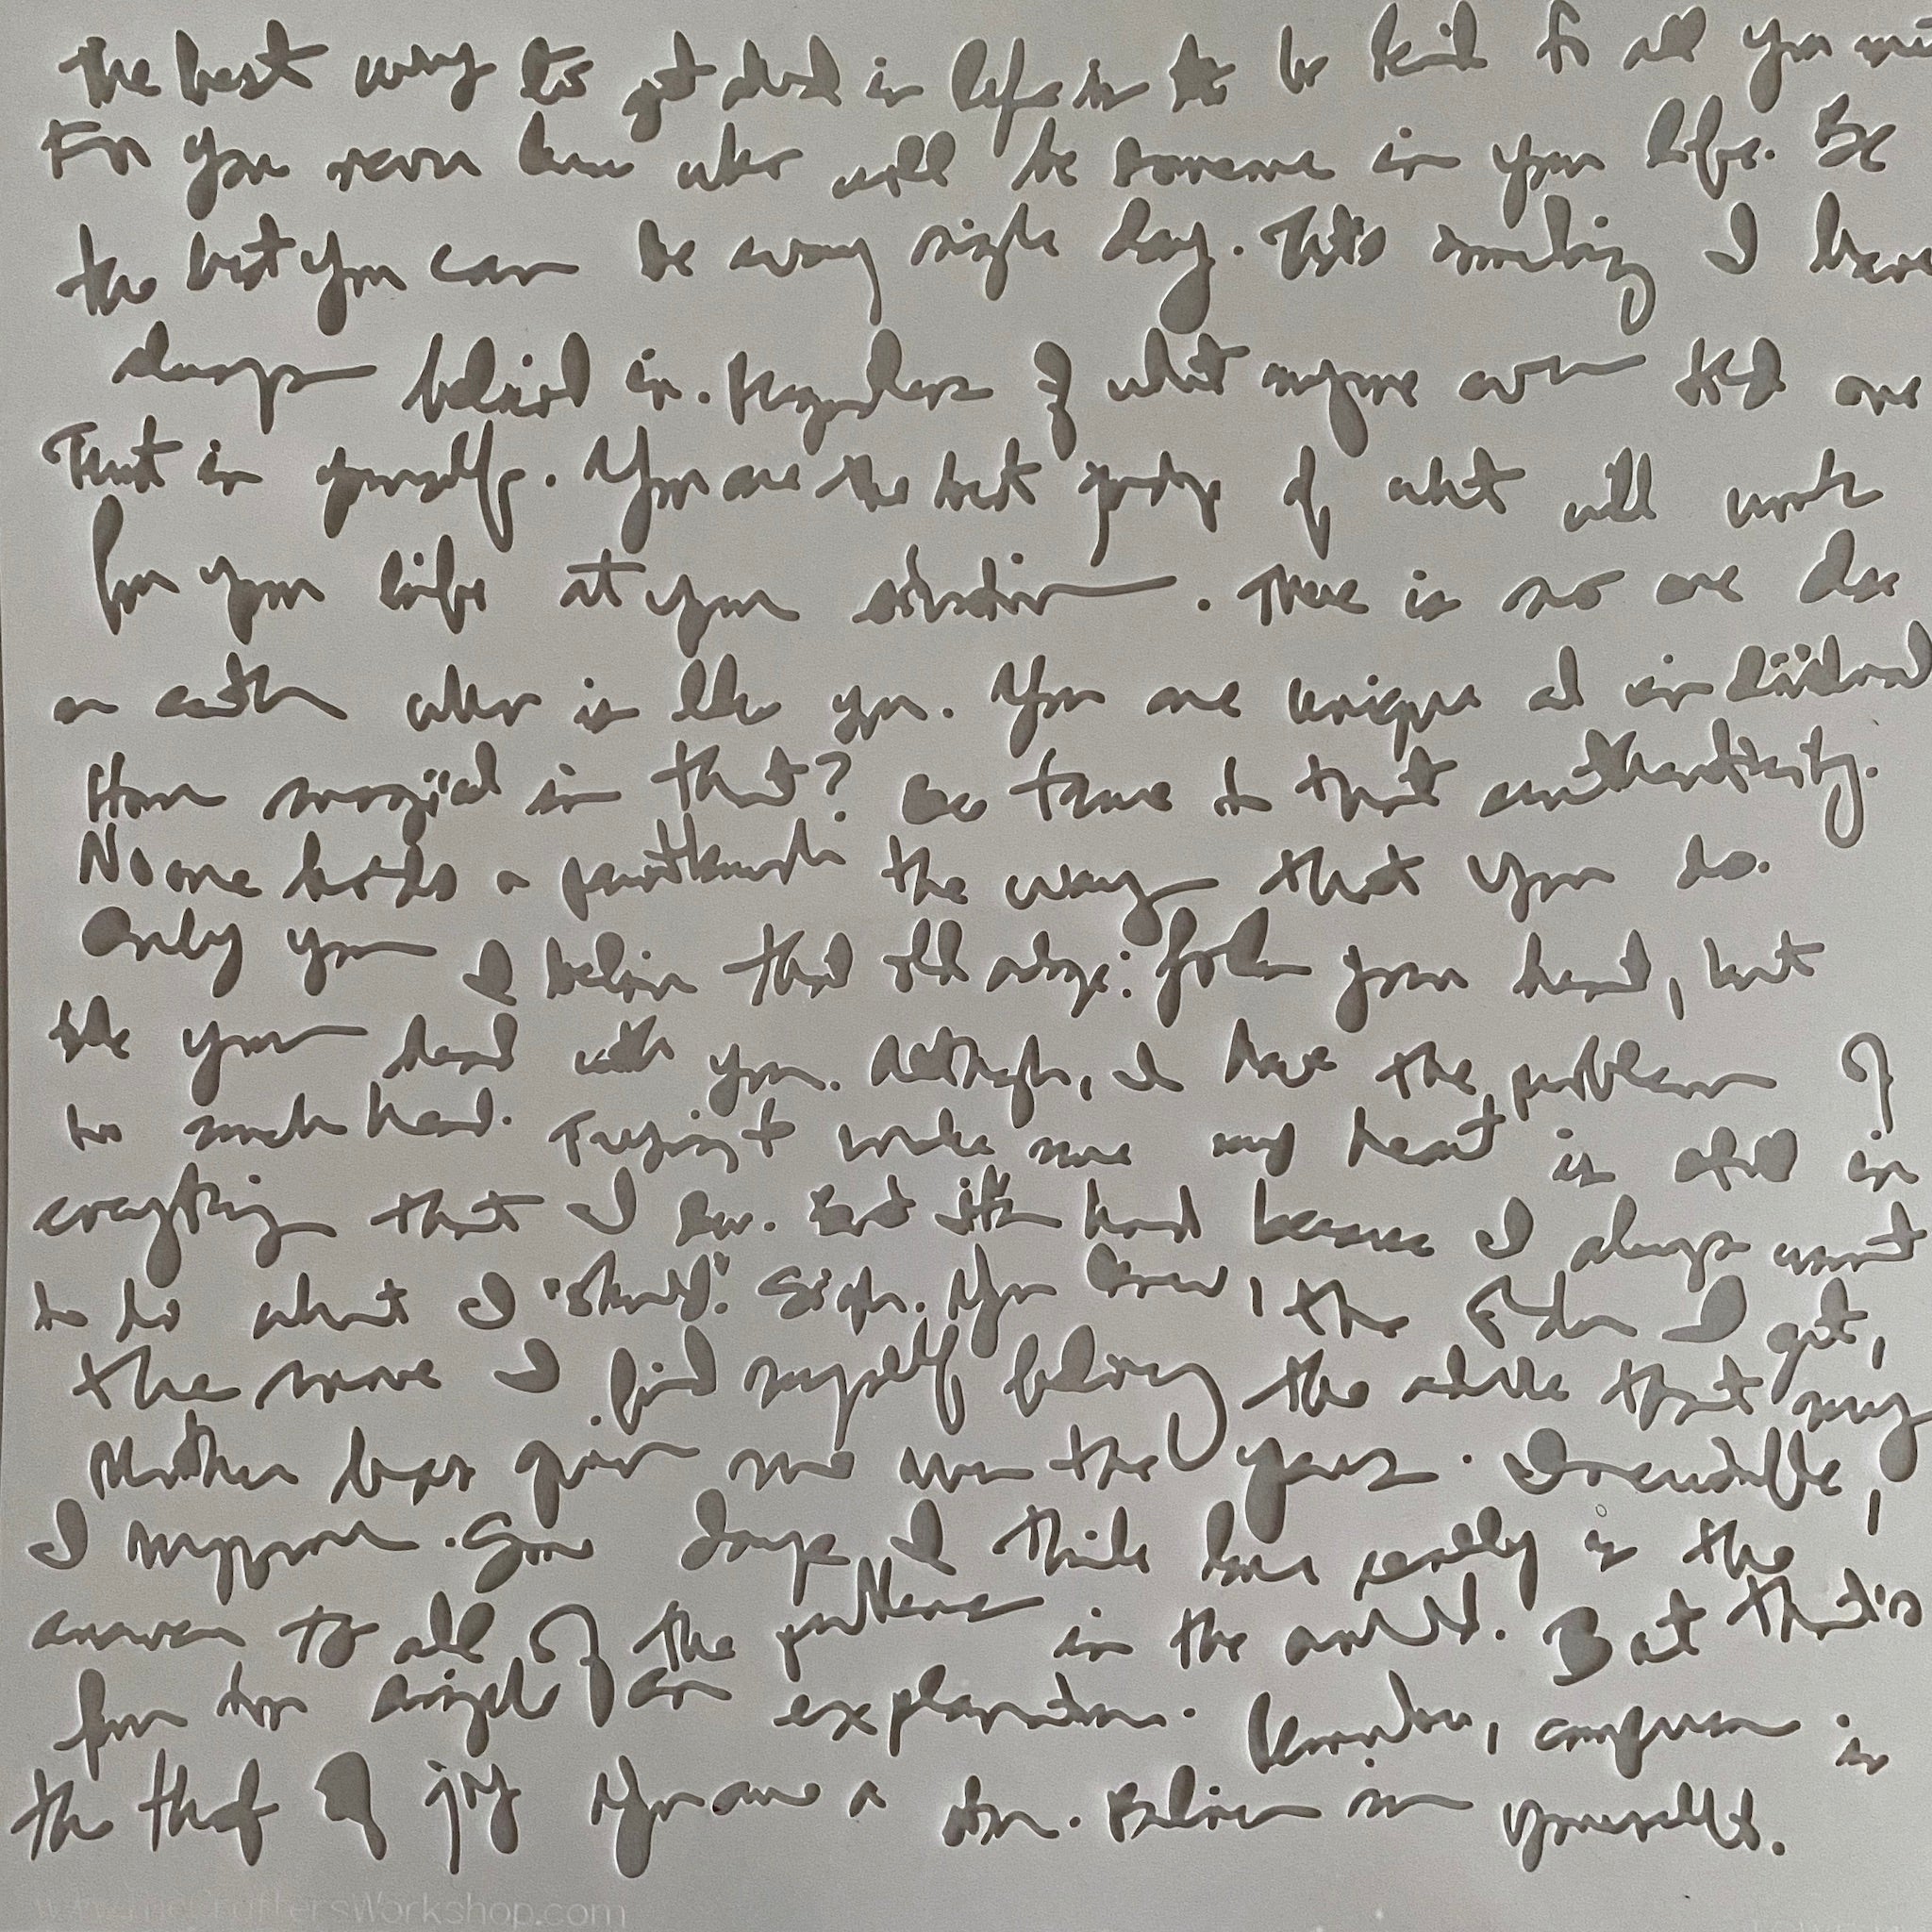 The best way to get ahead in life is to be kind to all you
For you never know who will be someone in your life. Be
the best you can be every single day. That's something I have
always believed in. Regardless of what anyone ever told
Trust in yourself. You are the best judge of what will work
for your life at your . There is no one else
on earth who is like you. You are unique
How magical is that? So tune in to that authenticity.
No one holds a paintbrush the way that you do.
Only you I believe that old adage: follow your heart, but
take your head with you. Although, I have the problem of
too much head. Trying to make sure my heart is also in
everything that I do. And it's hard because I always want
to do what I "should". Sigh. You know, the older I get,
the more I find myself following the advice that my
Mother has given me over the years. Incredible,
I suppose. Some days, I think love really is the
answer to all of the problems in the world. But that's
far too simple of an explanation. Remember, comparison is
the thief of joy You are a star. Believe in yourself.
www.theCraftersWorkshop.com